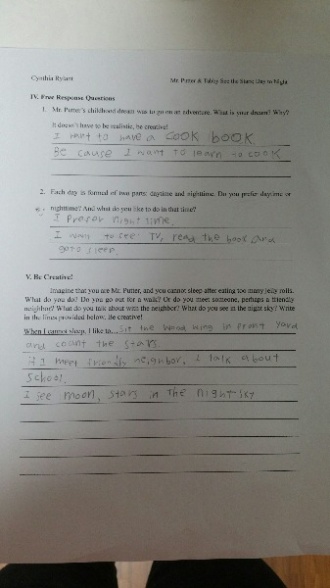 Cynthia Rylant
Mr. Putter & Tabby See the Stars: Day to Night
IV. Free Response Questions
1. Mr. Putter's childhood dream was to go on an adventure. What is your dream? Why?
It doesn't have to be realistic, be creative!
I want to have a cook book
Be cause I want to learn to cook
2. Each day is formed of two parts: daytime and nighttime. Do you prefer daytime or
nighttime? And what do you like to do in that time?
I prefer night time.
I want to see TV, read the book and
go to sleep.
V. Be Creative!
Imagine that you are Mr. Putter, and you cannot sleep after eating too many jelly rolls.
What do you do? Do you go out for a walk? Or do you meet someone, perhaps a friendly
neighbor? What do you talk about with the neighbor? What do you see in the night sky? Write
in the lines provided below. Be creative!
When I cannot sleep, I like to... sit the in front yard
and count the stars.
I meet neighbor, I talk about
school.
I see moon, stars in the night sky